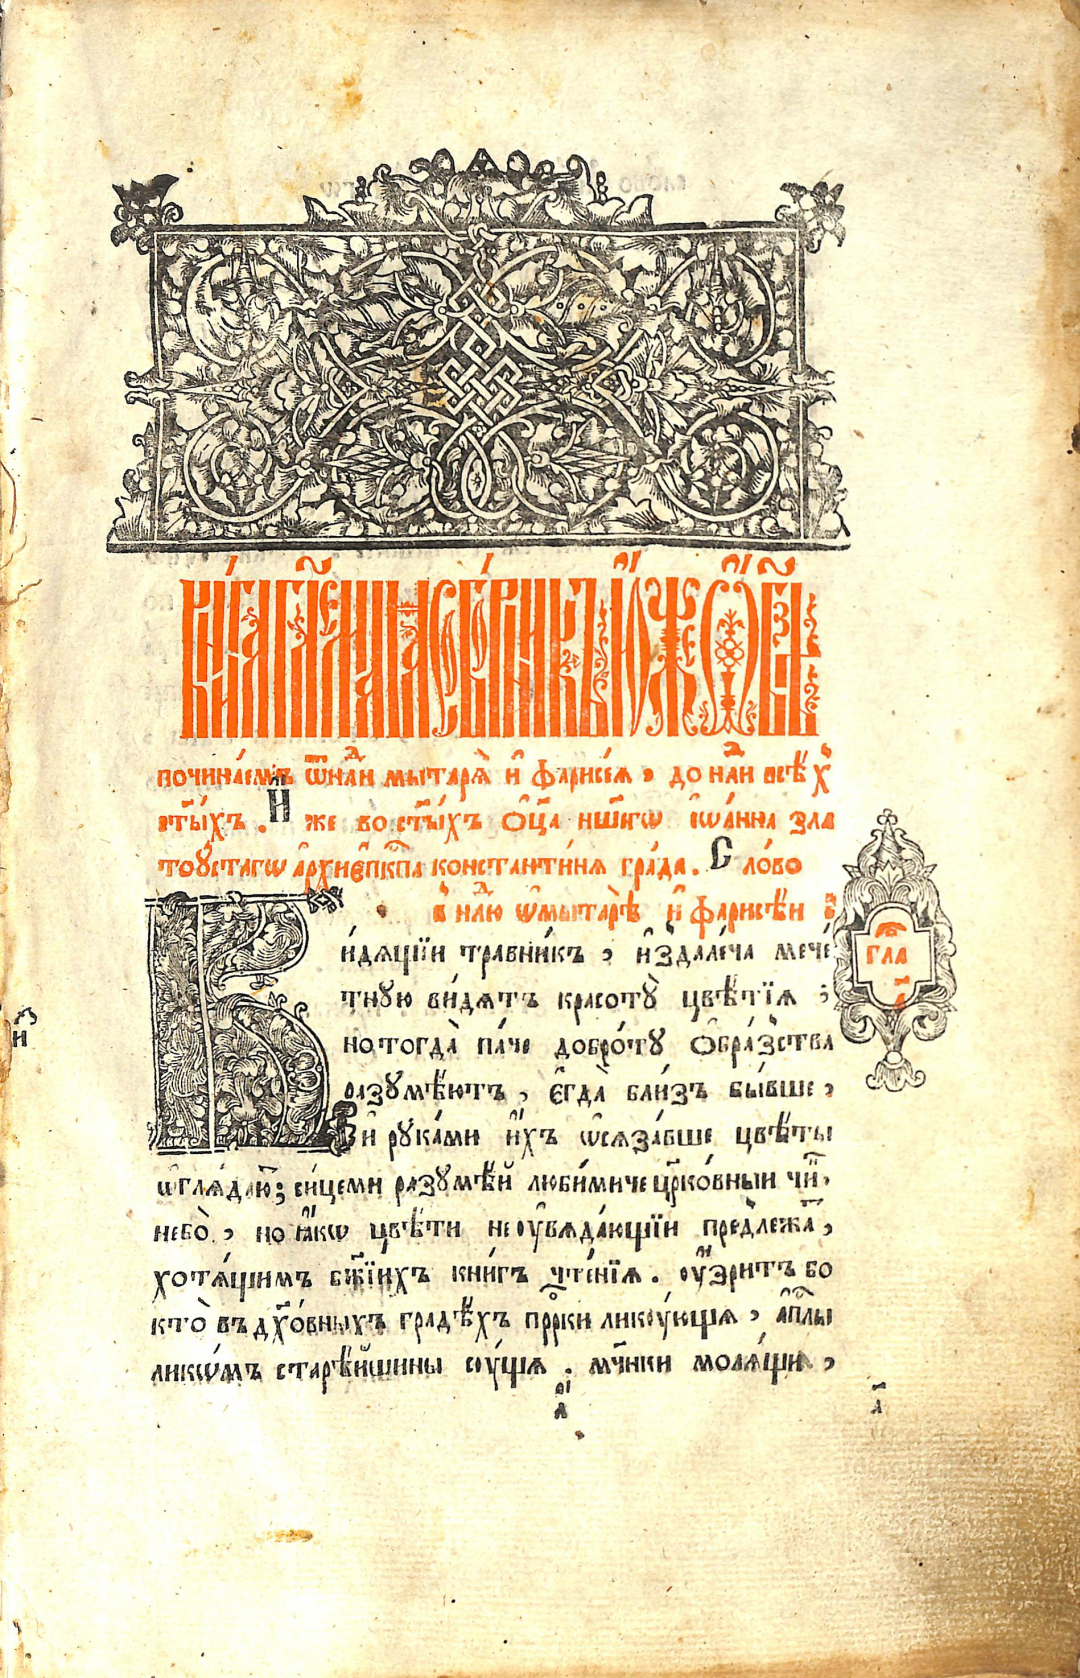 КНИ́ГА ГЛ҃ЕМАЯ СБО́РНИКЪ И҆́ЖЕ Ѿ БГ҃А
починáемъ ѿ нⷣли мытаря̀ и҆ фарисе́я, до нⷣли всѣ́хъ
ст҃ы́хъ. И҆́же во ст҃ы́хъ ѻ҆ц҃а нш҃егѡ і҆ѡа́нна зла
тоу́стагѡ а҆рхиепⷭ҇кпа константи́ня гра́да. Сло́во
в нⷣлю ѡ҆ мытарѣ̀ и҆ фарисѣ́и
гла
а҃
Ви́дящїи тра́вникъ, и҆здале́ча мече́
тную ви́дятъ красоту̀ цвѣ́тїя ;
но тогда̀ па́че добро́ту ѻ҆бра́зства
разумѣ́ютъ, є҆гда̀ бли́зъ бы́вше,
и҆ рука́ми и҆́хъ ѡ҆сяза́вше цвѣ́ты
ѡ҆гля́даю; си́цеми разумѣ́й люби́миче цр҃ко́вныи чи́н,
небо̀, но ꙗ҆́кѡ цвѣ́ти не ᲂу҆вяда́ющїи предлежа́т,
хотя́щимъ бж҃їихъ кни́гъ чте́нїя. ᲂу҆́зритъ бо
кто̀ въ дх҃о́вныхъ градѣ́хъ прⷪ҇рки лику́ющя, а҆пⷭ҇лы
ликѡ́мъ старѣ́йшины су́щя. мч҃нки моля́щи,
а҃